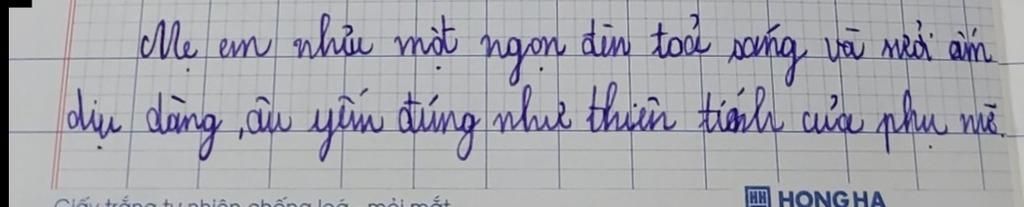 Mẹ em như một ngọn đèn toả sáng và sưởi ấm
dịu dàng, âu yếm đúng như thiên tính của phụ nữ.
Giấy trắng tự nhiên chống loá, mỏi mắt
HH HONG HA